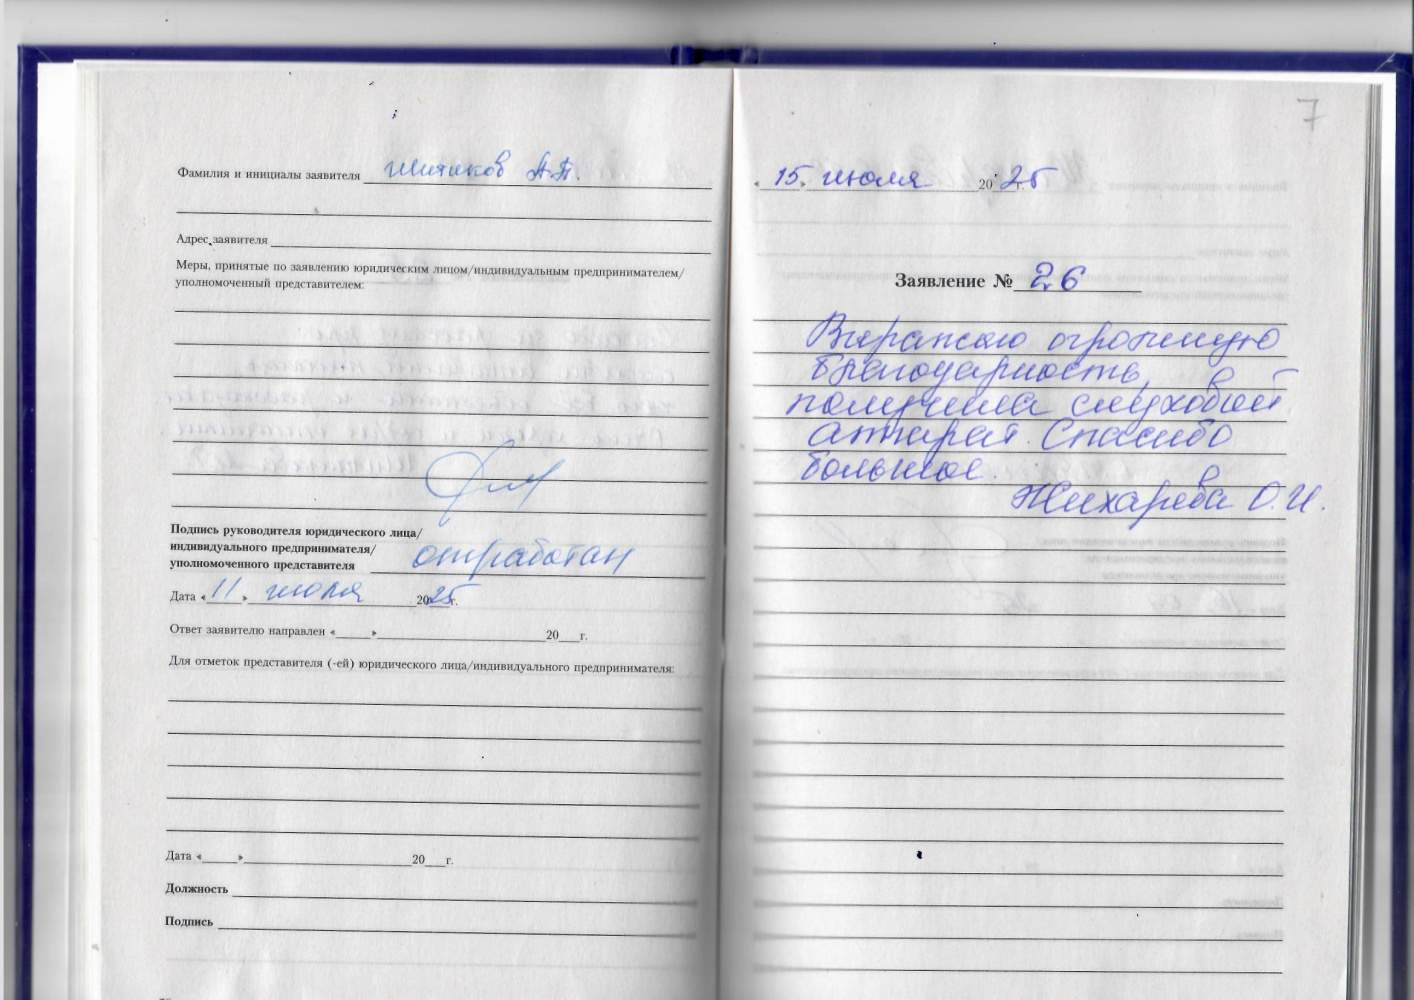 Фамилия и инициалы заявителя Шитиков А.П.
Адрес заявителя
Меры, принятые по заявлению юридическим лицом/индивидуальным предпринимателем/
уполномоченный представителем:
Подпись руководителя юридического лица/
индивидуального предпринимателя/
уполномоченного представителя отработан
Дата «11» июля 2025г.
Ответ заявителю направлен «____»____20___г.
Для отметок представителя (-ей) юридического лица/индивидуального предпринимателя:
Дата «____»____20___г.
Должность
Подпись
7
«15» июля 2025г.
Заявление № 26
Выражаю огромную
благодарность,
получила слуховой
аппарат. Спасибо
большое.
Жихарева О.И.